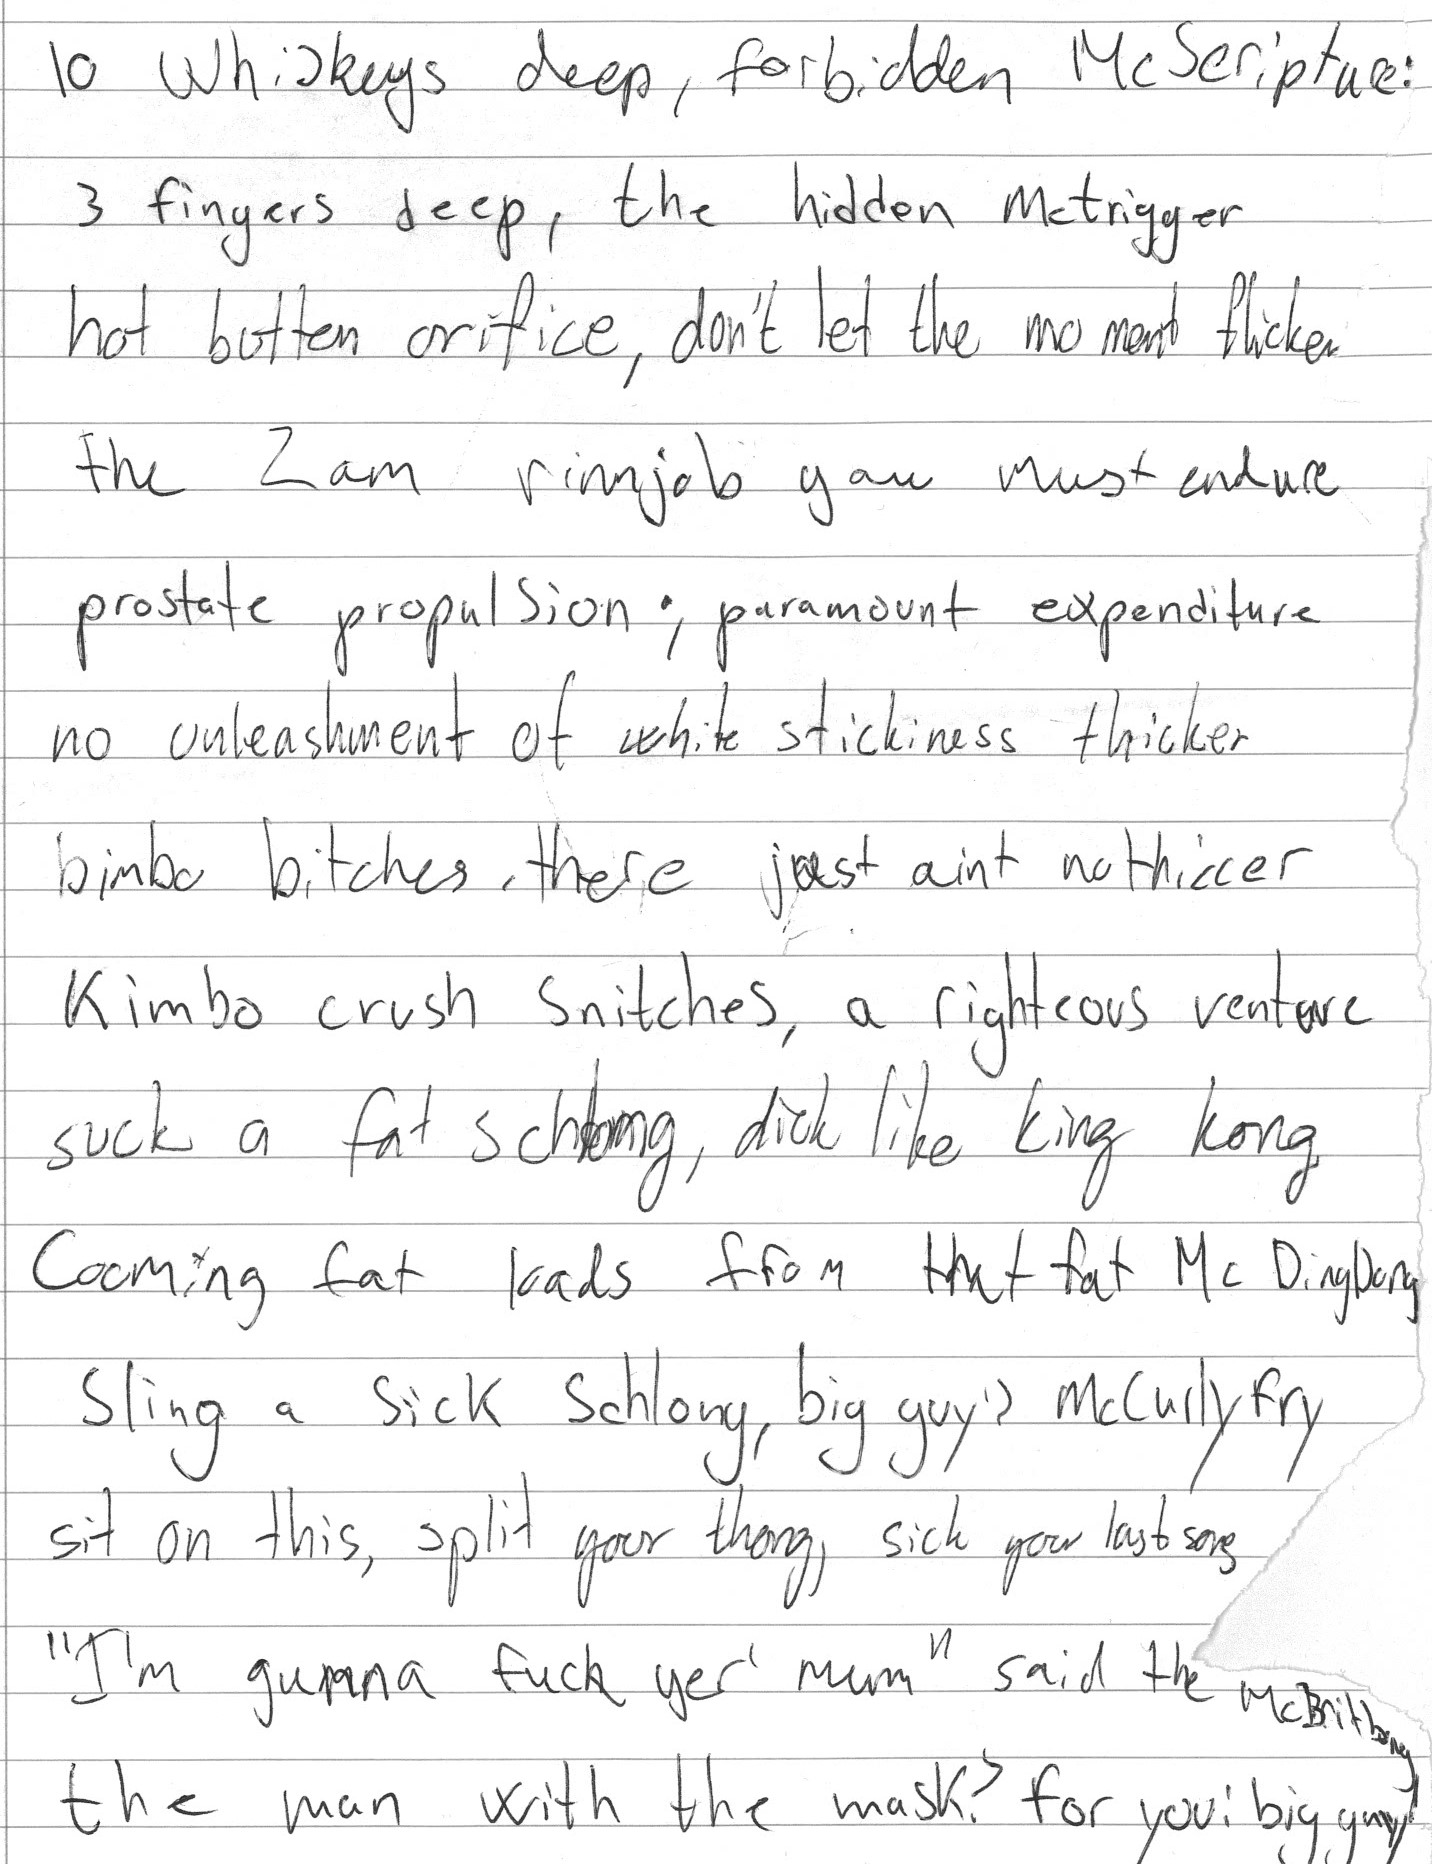 10 Whiskeys deep, forbidden McScripture:
3 fingers deep, the hidden Mctrigger
hot botten orifice, don't let the moment flicker
the 2am rimjob you must endure
prostate propulsion; paramount expenditure
no unleashment of white stickiness thicker
bimbo bitches, there just aint no thiccer
Kimbo crush Snitches, a righteous venture
suck a fat schlong, dick like king kong
Cooming fat loads from that fat Mc DingDong
Sling a Sick Schlong, big guy's McCurlyfry
sit on this, split your thong, sick your last song
"I'm gunna fuck yer' mum" said the McBritbong
the man with the mask? for you! big guy